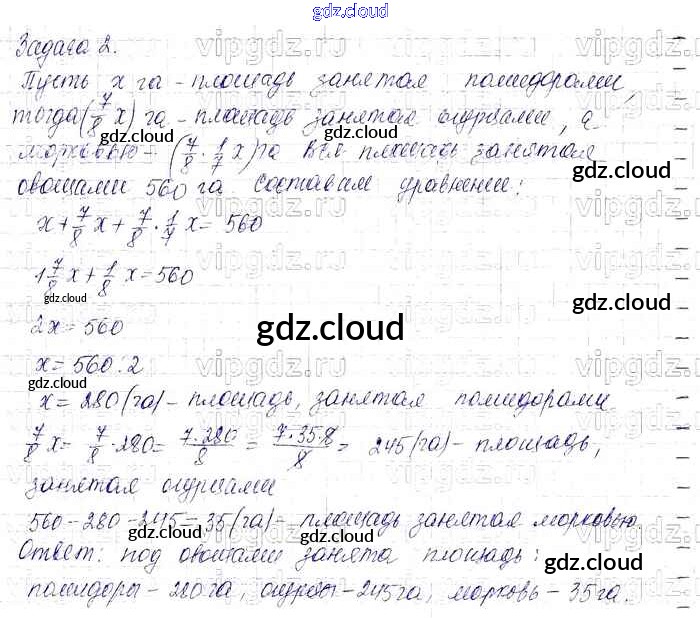 gdz.cloud
Задача 2.
Пусть x га - площадь занятая помидорами,
тогда (7/8 x) га - площадь занятая огурцами, а
морковью - (7/8 · 1/7 x) га Вся площадь занятая
овощами 560 га. Составим уравнение:
x + 7/8 x + 7/8 · 1/7 x = 560
1 7/8 x + 1/8 x = 560
2x = 560
x = 560 : 2
x = 280 (га) - площадь, занятая помидорами
7/8 x = 7/8 · 280 = 7·280/8 = 7·35·8/8 = 245 (га) - площадь,
занятая огурцами
560 - 280 - 245 = 35 (га) - площадь занятая морковью.
Ответ: под овощами занята площадь:
помидоры - 280 га, огурцы - 245 га, морковь - 35 га.
vipgdz.ru
gdz.cloud